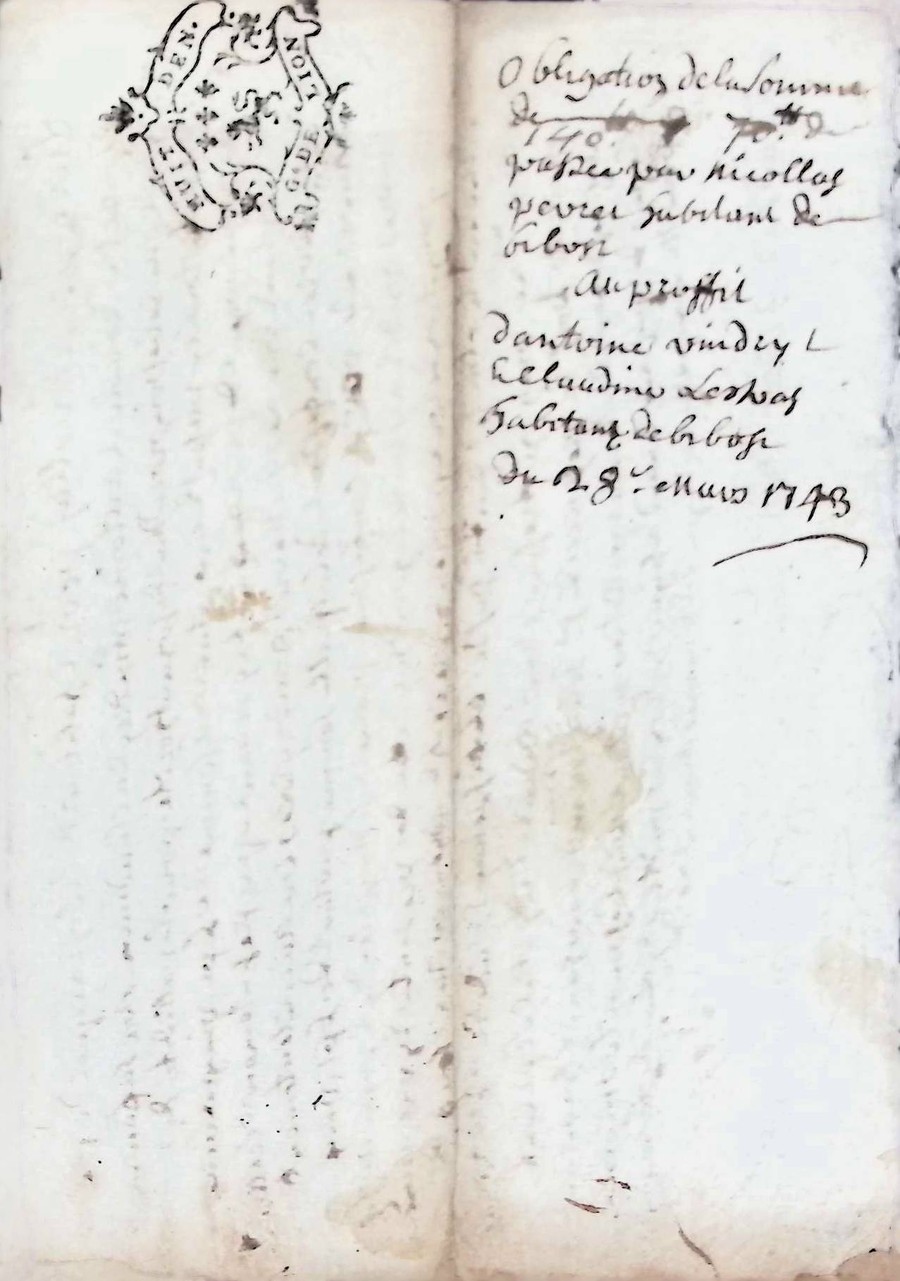 G. DE LION
HUIT DEN.
Obligation de la somme
de 140 70.tt de
passee par nicollas
habitant de
bibost
Au proffit
dantoine vindry &
Claudine
habitans de bibost
du 28.e Mars 1743